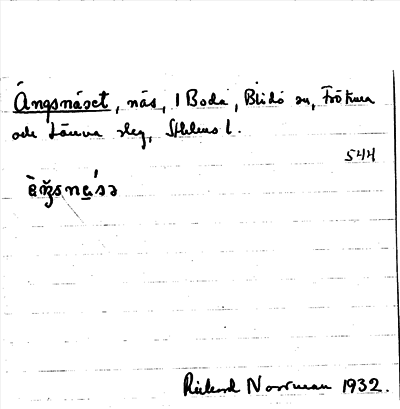 Ängsnäset, näs, 1 Boda, Blidö sn, Frötuna
och Länna slg, Sthlms l.
544
Rickard Norrman 1932.